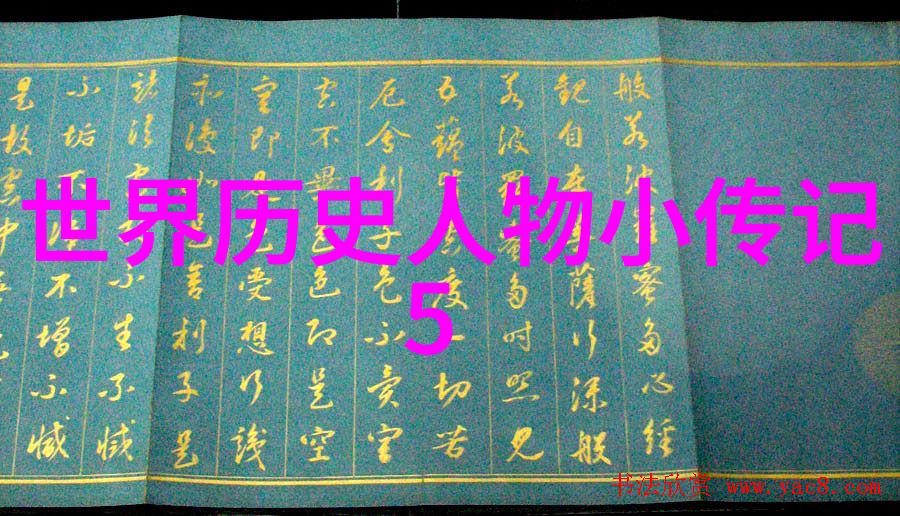 世界历史人物小传记
5
般若波羅蜜多心經
觀自在菩薩行深般
若波羅蜜多时照見
五蘊皆空度一切苦
厄舍利子色不異空
空不異色色即是空
空即是色受想行識
亦復如是舍利子是
諸法空相不生不滅
不垢不淨不增不減
是故空中
书法欣赏 www.yac8.com